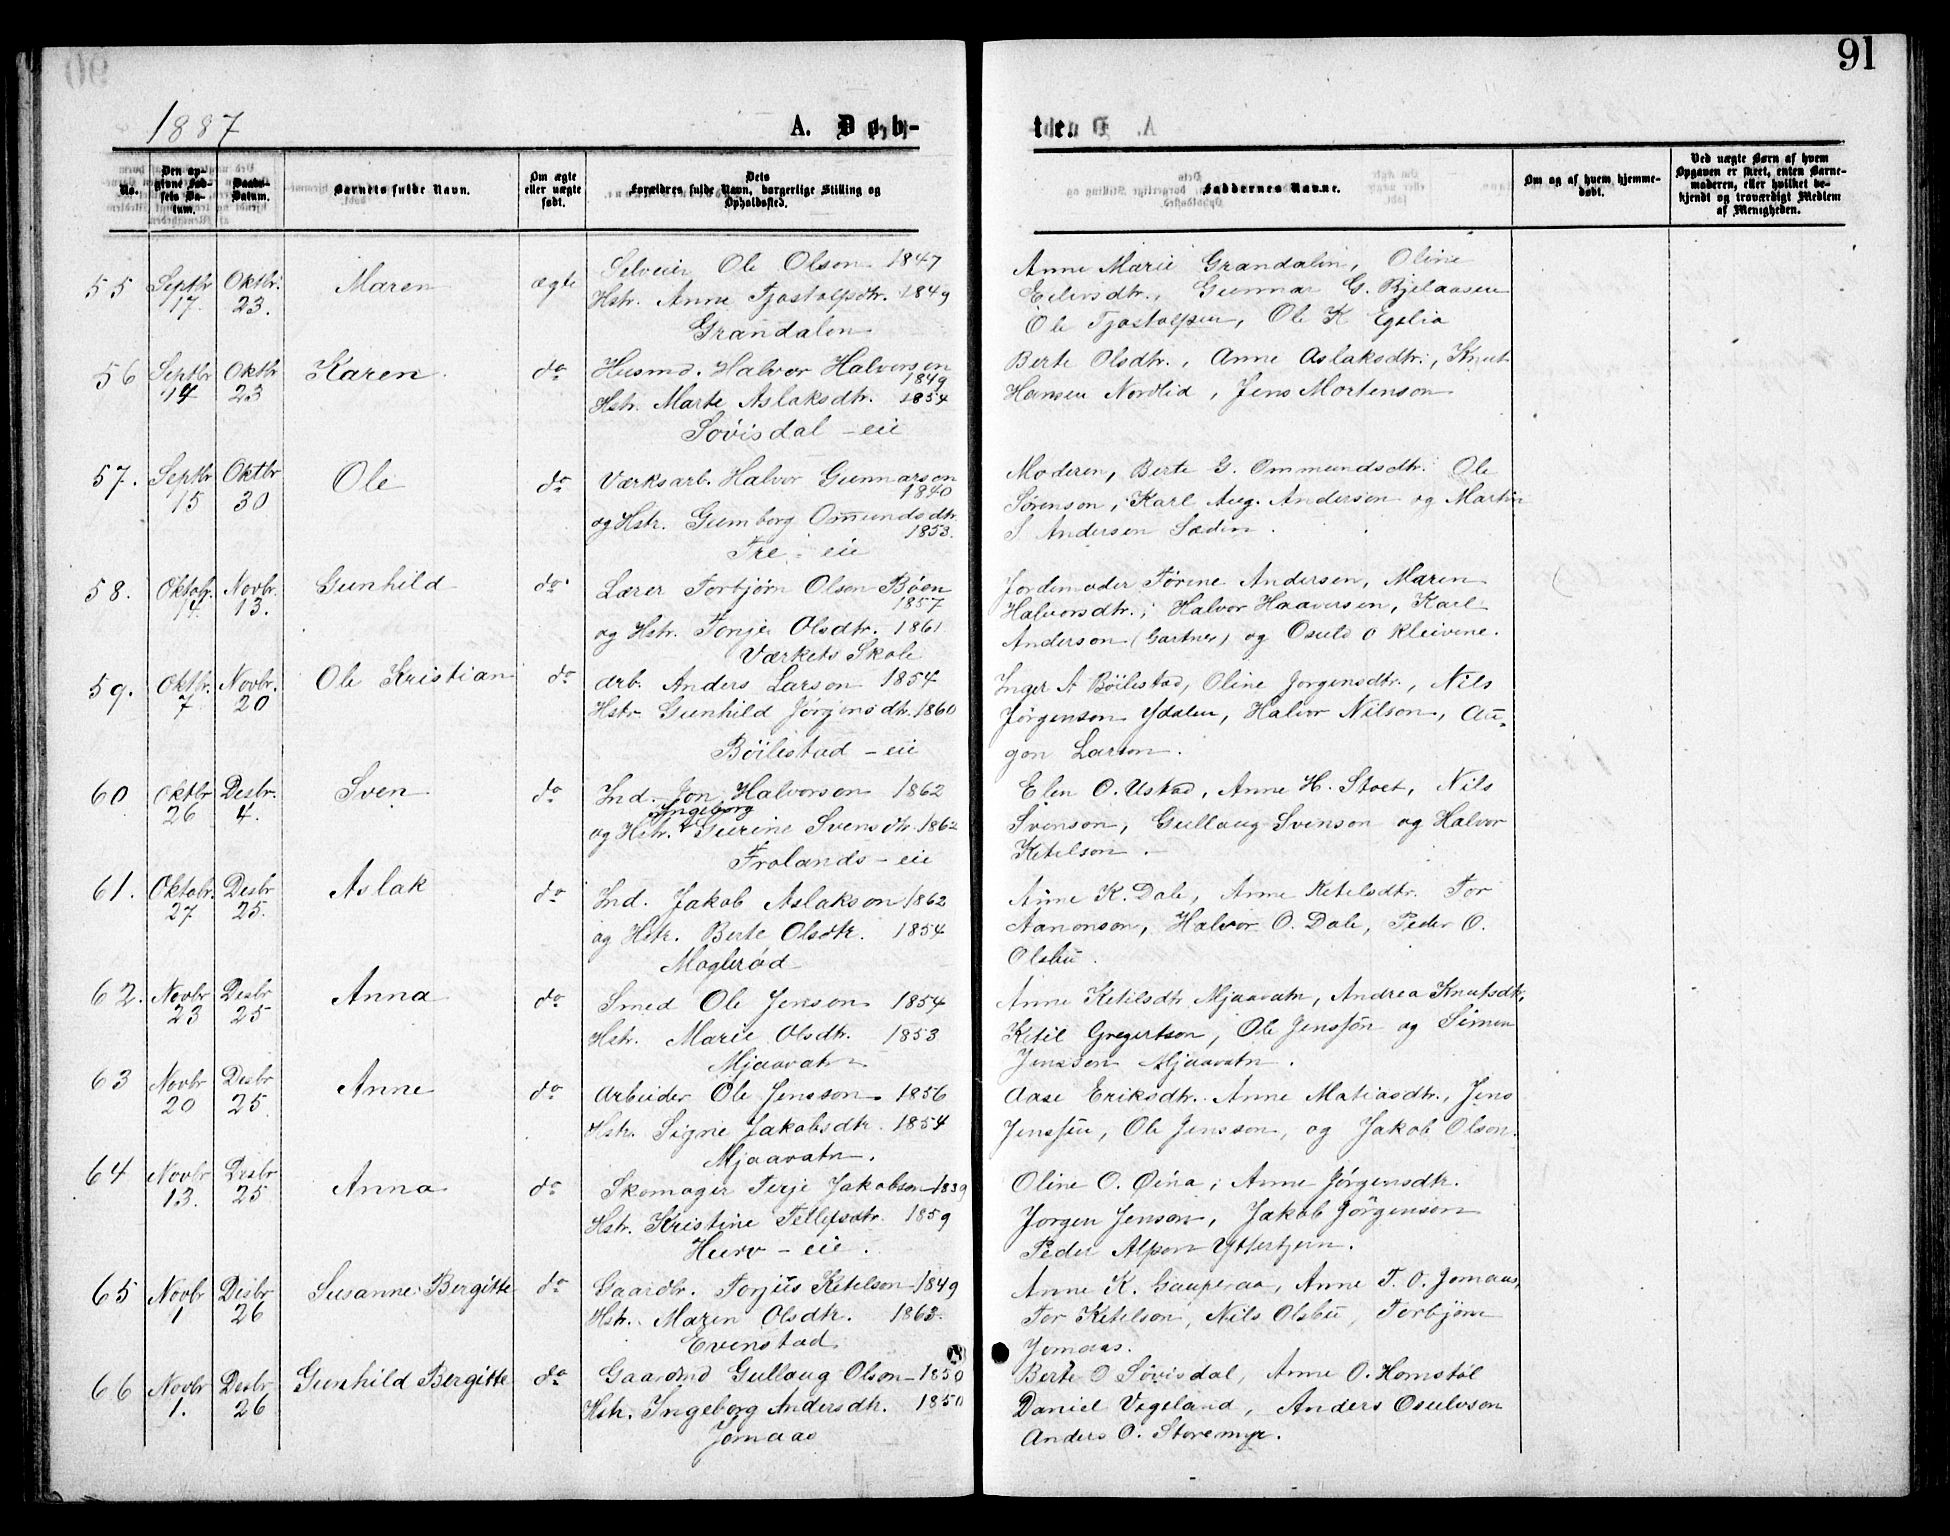 91
1887
A. Døb-
te.
No.
Den opgivne Fødsels Datum.
Daabs-Datum.
Barnets fulde Navn.
Om ægte eller uægte født.
Dets Forældres fulde Navn, borgerlige Stilling og Opholdssted.
Faddernes Navne.
Om og af hvem hjemmedøbt.
Ved uægte Børn af hvem Opgaven er skeet, enten Barnemoderen, eller hvilket bekjendt og troværdigt Medlem af Menigheden.
55 Septbr 17. Oktbr. 23. Maren ægte
Selveier Ole Olson 1847
Hstr. Anne Tjostolfsdtr. 1849
Grandalen
Anne Marie Grandalin, Oline
Eilersdtr., Gunnar G. Bjelaasen
Ole Tjostolfsen, Ole K Egelia
56 Septbr 14 Oktbr 23 Karen do
Husmd. Halvor Halvorson
1849
Hstr. Marte Aslaksdtr. 1854
Sovisdal - eie
Berte Olsdtr., Anne Aslaksdtr., Knut
Hansen Nordlid, Jens Mortenson
57. Septbr 15 Oktbr 30 Ole do
Værksarb. Halvor Gunnarson
1840
og Hstr. Gumborg Omundsdtr.
1853.
Tre - eie
Moderen, Berte G. Ommundsdtr. Ole
Sørenson, Karl Aug. Anderson og Martin
S Andersen Lædim.
58. Oktobr. 14. Novbr. 13. Gunhild do.
Lærer Torbjørn Olson Bøen
1857
og Hstr. Tonje Olsdtr. 1861
Værkets Skole
Jordemoder Tørine Andersen, Maren
Halvorsdtr., Halvor Haaversen, Karl
Anderson (Gartner) og Osuld O Kleivene.
59. Oktbr. 7 Novbr. 20 Ole Kristian do
Arb. Anders Larson 1854
Hstr Gunhild Jørgensdtr. 1860
Böilestad - eie
Inger A Böilestad, Oline Jorgensdtr., Nils
Jörgenson Ydalen, Halvor Nilson, Au-
gon Larson.
60 Oktbr 26 Desbr. 4. Sven do
Ind. Jon Halvorson 1862
Ingeborg
og Hstr. Gurine Svensdtr. 1862
Frolands - eie
Elen O. Ustad, Anne H. Stoet, Nils
Svenson, Gullaug Svenson og Halvor
Ketelson.
61. Oktobr. 27 Desbr 25. Aslak do
Ind. Jakob Aslakson 1862
og Hstr. Berte Olsdtr. 1854
Moglerød
Anne K. Dale, Anne Ketelsdtr. Tor
Aanonson, Halvor O. Dale, Peder O.
Olsbu.
62. Novbr 23 Desbr 25 Anna do
Smed Ole Jenson 1854
Hstr. Marie Olsdtr. 1853
Mjaavatn
Anne Ketilsdtr Mjaavatn, Andrea Knutsdtr,
Ketil Gregertson, Ole Jensson og Simen
Jensson Mjaavatn.
63 Novbr 20 Desbr 25. Anne do
Arbeider Ole Jensson 1856
Hstr. Signe Jakobsdtr. 1854
Mjaavatn.
Aase Eriksdtr. Anne Matiasdtr., Jens
Jenssen, Ole Jensson, og Jakob Olson.
64 Novbr 13. Desbr 25 Anna do
Skomager Terje Jakobson 1839
Hstr. Kristine Tellefsdtr. 1859
Hurv - eie.
Oline O. Øina, Anne Jörgensdtr.
Jorgen Jenson, Jakob Jörgenson
Peder Alfson Yttertjern.
65 Novbr 1 Desbr 26 Susanne Bergitte do
Gaardbr. Torjus Ketelson 1849
Hstr. Maren Olsdtr. 1863.
Evenstad
Anne K. Gauperaa, Anne T. O. Jomaas,
Tor Ketelson, Nils Olsbu, Torbjørn
Jomaas.
66 Novbr 1. Desbr 26 Gunhild Bergitte do
Gaardmd Gullaug Olson 1850
Hstr. Ingeborg Andersdtr. 1850
Jomaas
Berte O Sövisdal, Anne O. Homstöl
Daniel Vegeland, Anders Osulvson
Anders O. Storemyr.